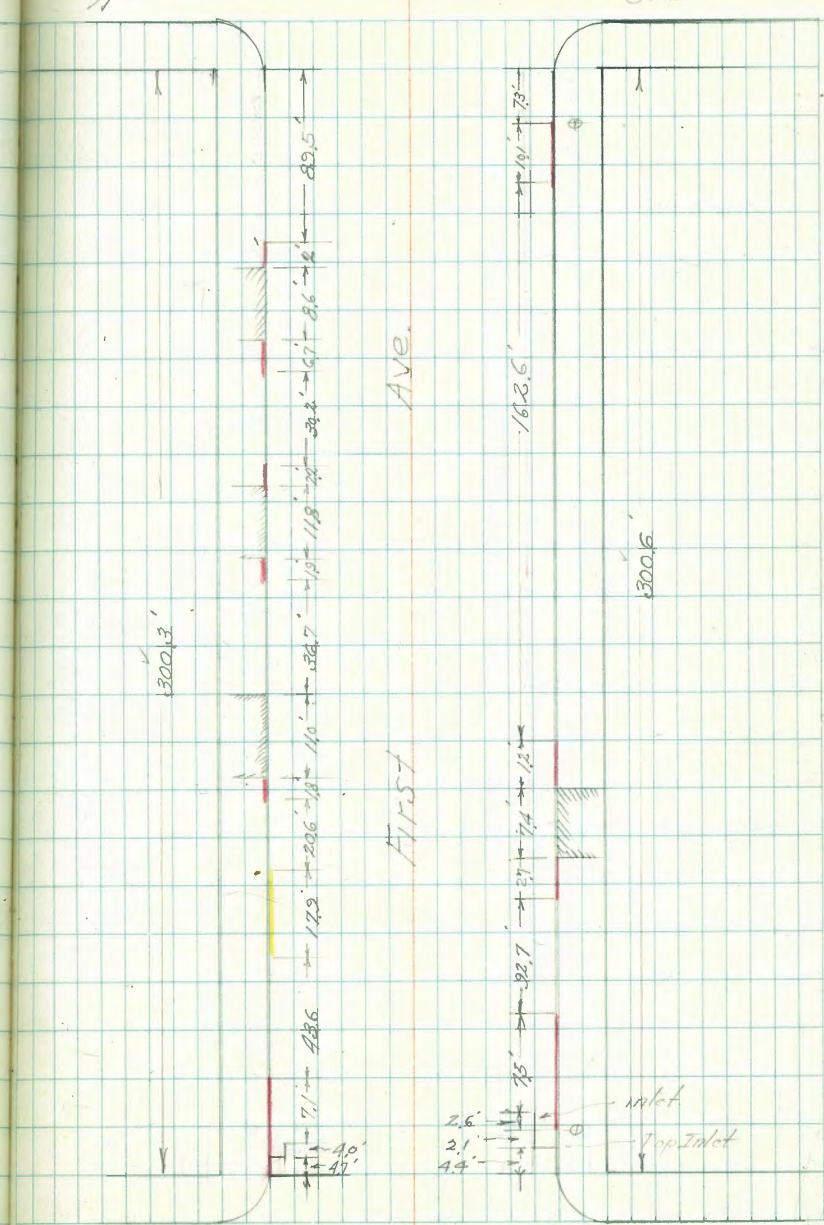 300.3'
89.5'
2'
8.6'
6.7'
30.2'
2.2'
11.8'
1.9'
36.7'
11.0'
1.8'
20.6'
17.9'
43.6
7.1'
4.0'
4.7'
First Ave.
7.3'
10.1'
162.6'
1.2'
7.4'
2.7'
92.7'
7.5'
2.6'
2.1'
4.4'
inlet
Top Inlet
300.6'